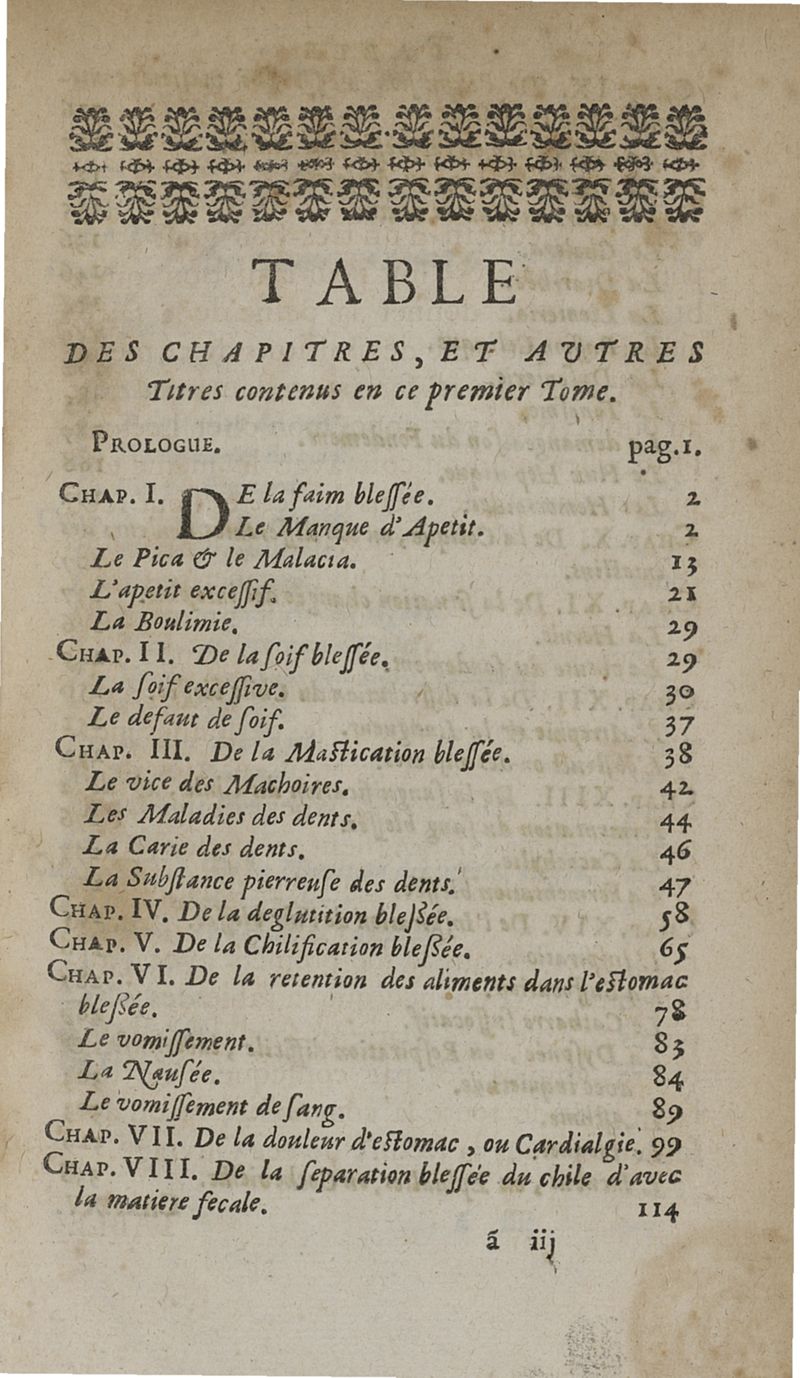 TABLE
DES CHAPITRES, ET AVTRES
Titres contenus en ce premier Tome.
PROLOGUE. pag.1.
CHAP. I. DE la faim bleſſée. 2
Le Manque d'Apetit. 2
Le Pica & le Malacia. 13
L'apetit exceſſif. 21
La Boulimie. 29
CHAP. II. De la ſoif bleſſée. 29
La ſoif exceſſive. 30
Le defaut de ſoif. 37
CHAP. III. De la Maſtication bleſſée. 38
Le vice des Machoires. 42
Les Maladies des dents. 44
La Carie des dents. 46
La Subſtance pierreuſe des dents. 47
CHAP. IV. De la deglutition bleſſée. 58
CHAP. V. De la Chilification bleſſée. 65
CHAP. VI. De la retention des aliments dans l'eſtomac
bleſſée. 78
Le vomiſſement. 83
La Nauſée. 84
Le vomiſſement de ſang. 89
CHAP. VII. De la douleur d'eſtomac, ou Cardialgie. 99
CHAP. VIII. De la ſeparation bleſſée du chile d'avec
la matiere fecale. 114
ã iij